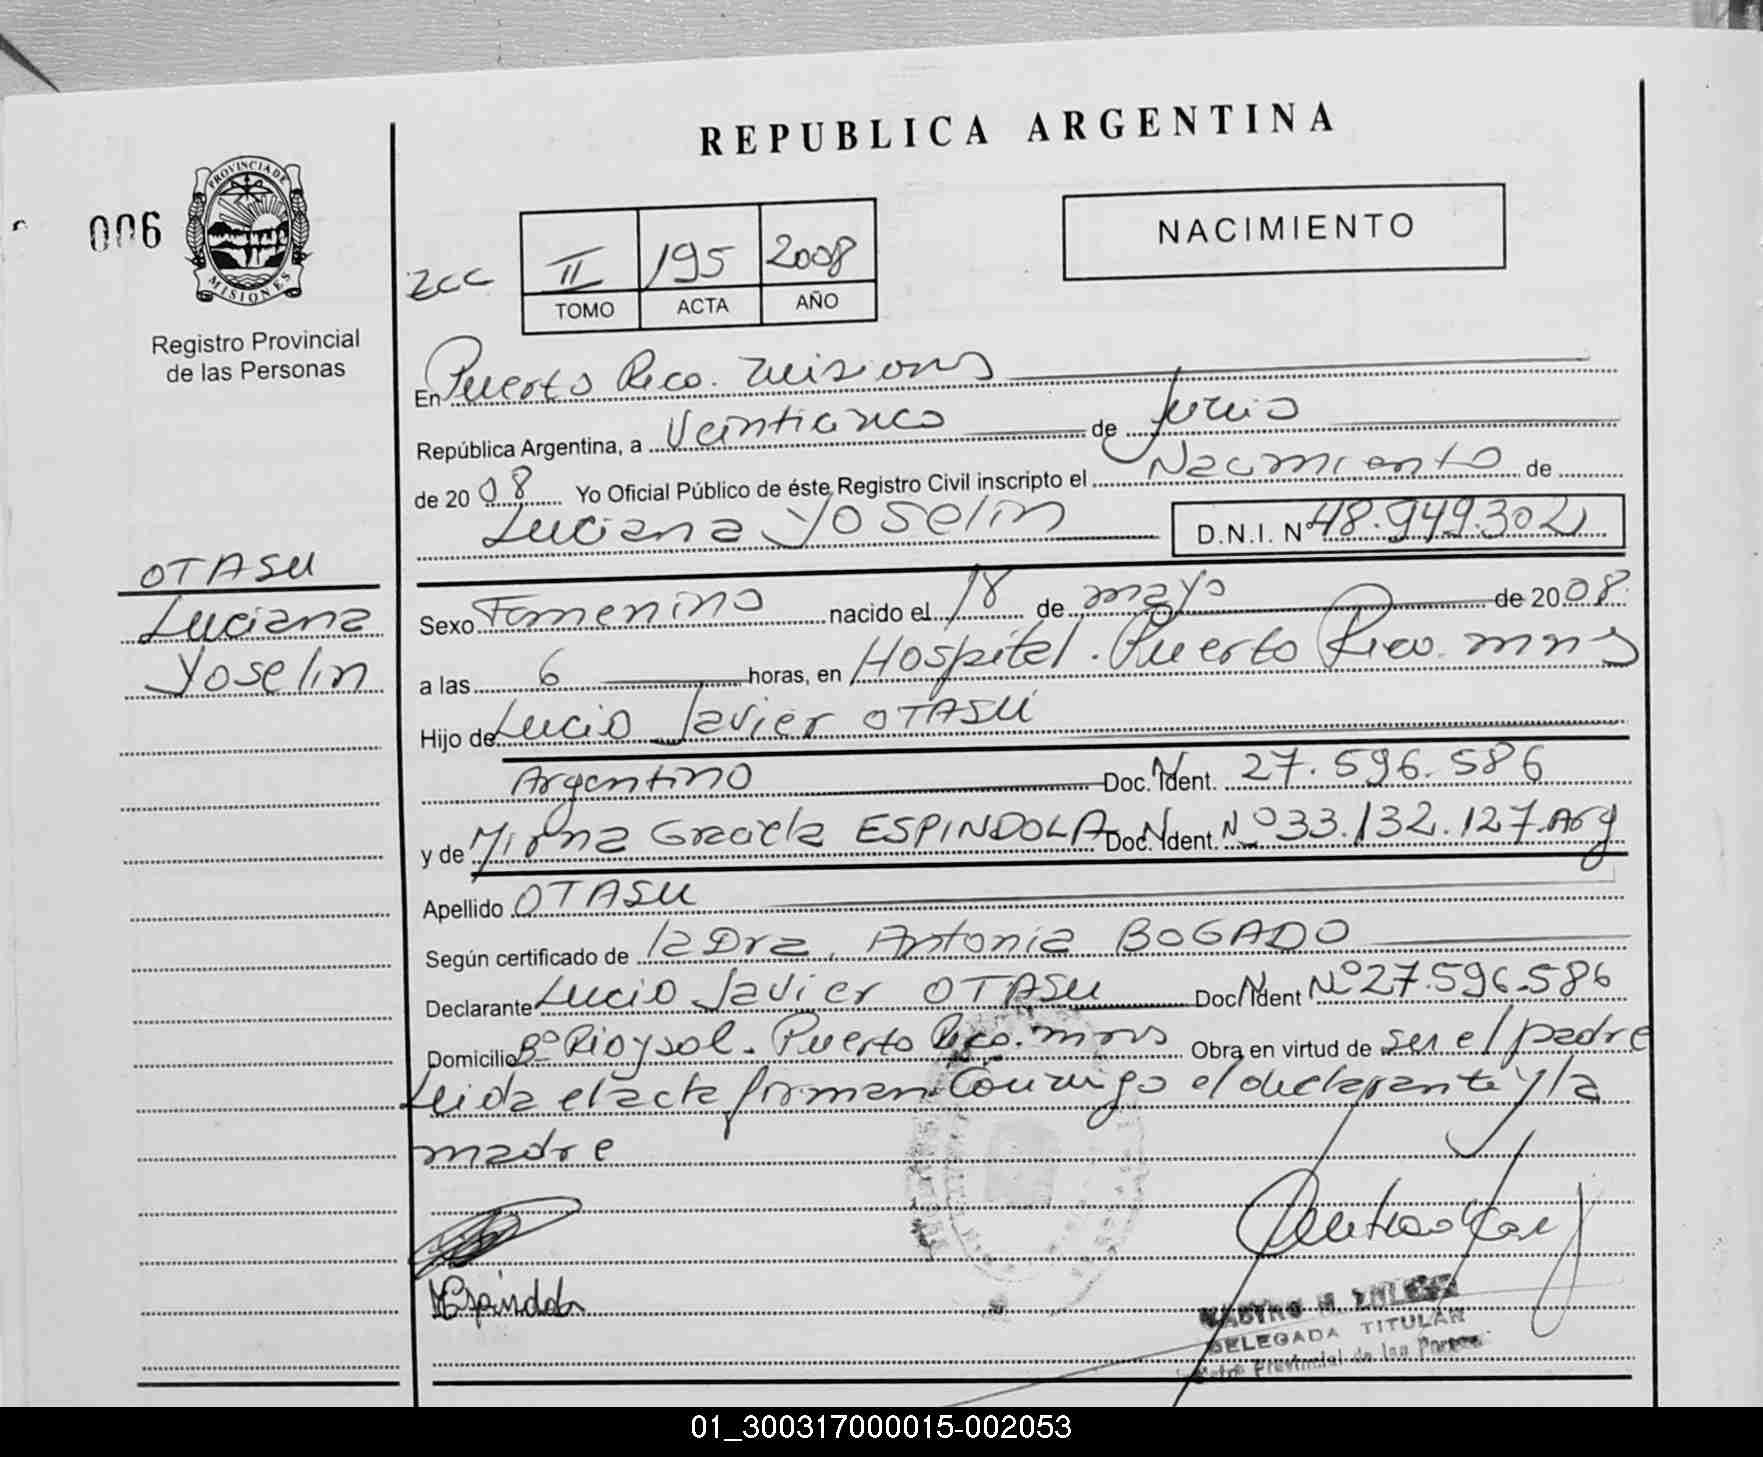 REPUBLICA ARGENTINA
006
PROVINCIA DE
MISIONES
Registro Provincial
de las Personas
II 195 2008
TOMO ACTA AÑO
NACIMIENTO
En Puerto Rico. Misiones
República Argentina, a Veinticinco de Junio
de 2008 Yo Oficial Público de éste Registro Civil inscripto el Nacimiento de
Luciana Yoselin D.N.I. Nº 48.949.302
OTASU
Luciana
Yoselin
Sexo Femenino nacido el 18 de mayo de 2008
a las 6 horas, en Hospital. Puerto Rico. mns
Hijo de Lucio Javier OTASU
Argentino Doc. Ident. 27.596.586
y de Mirna Graciela ESPINDOLA Doc. Ident. Nº 33.132.127. Arg
Apellido OTASU
Según certificado de la Dra. Antonia BOGADO
Declarante Lucio Javier OTASU Doc. Ident Nº 27.596.586
Domicilio Bº Rio y sol. Puerto Rico. mns Obra en virtud de ser el padre
Leida el acta firman conmigo el declarante y la
madre
MEspindola
DELEGADA TITULAR
Provincial de las
01_300317000015-002053